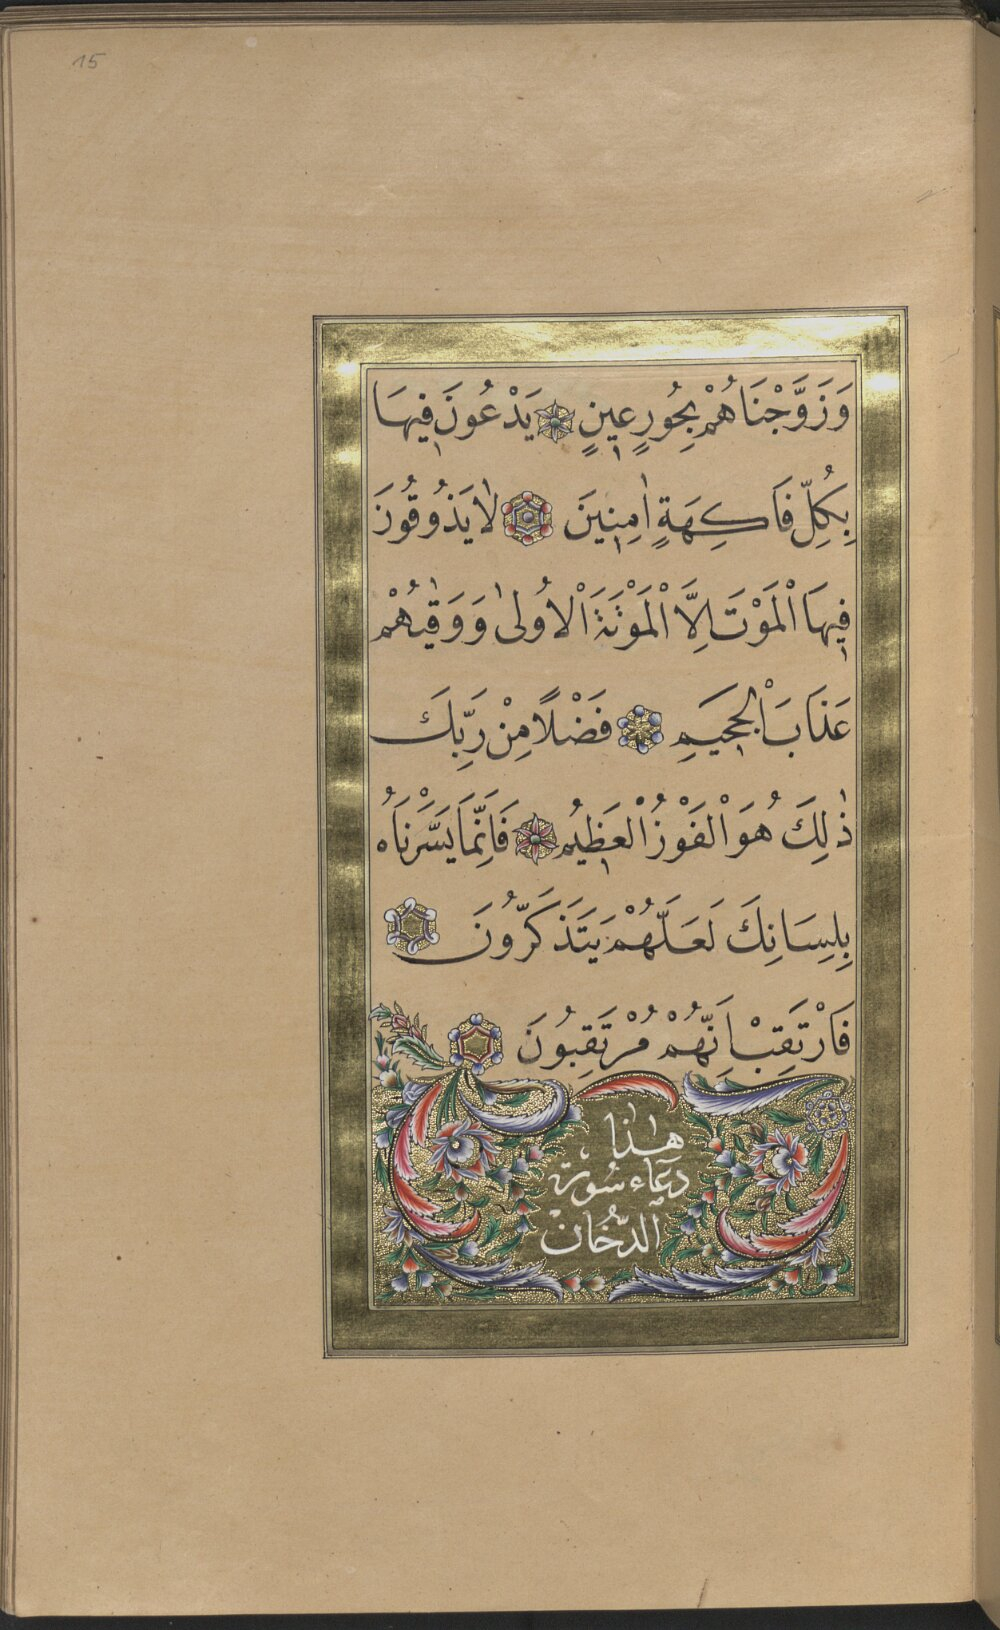 15
وَزَوَّجْنَاهُمْ بِحُورٍ عِينٍ يَدْعُونَ فِيهَا
بِكُلِّ فَاكِهَةٍ اٰمِنِينَ لَا يَذُوقُونَ
فِيهَا الْمَوْتَ اِلَّا الْمَوْتَةَ الْاُولٰى وَوَقٰيهُمْ
عَذَابَ الْجَحِيمِ فَضْلًا مِنْ رَبِّكَ
ذٰلِكَ هُوَ الْفَوْزُ الْعَظِيمُ فَاِنَّمَا يَسَّرْنَاهُ
بِلِسَانِكَ لَعَلَّهُمْ يَتَذَكَّرُونَ
فَارْتَقِبْ اِنَّهُمْ مُرْتَقِبُونَ
هٰذَا
دعَاء سُورة
الدُّخَان